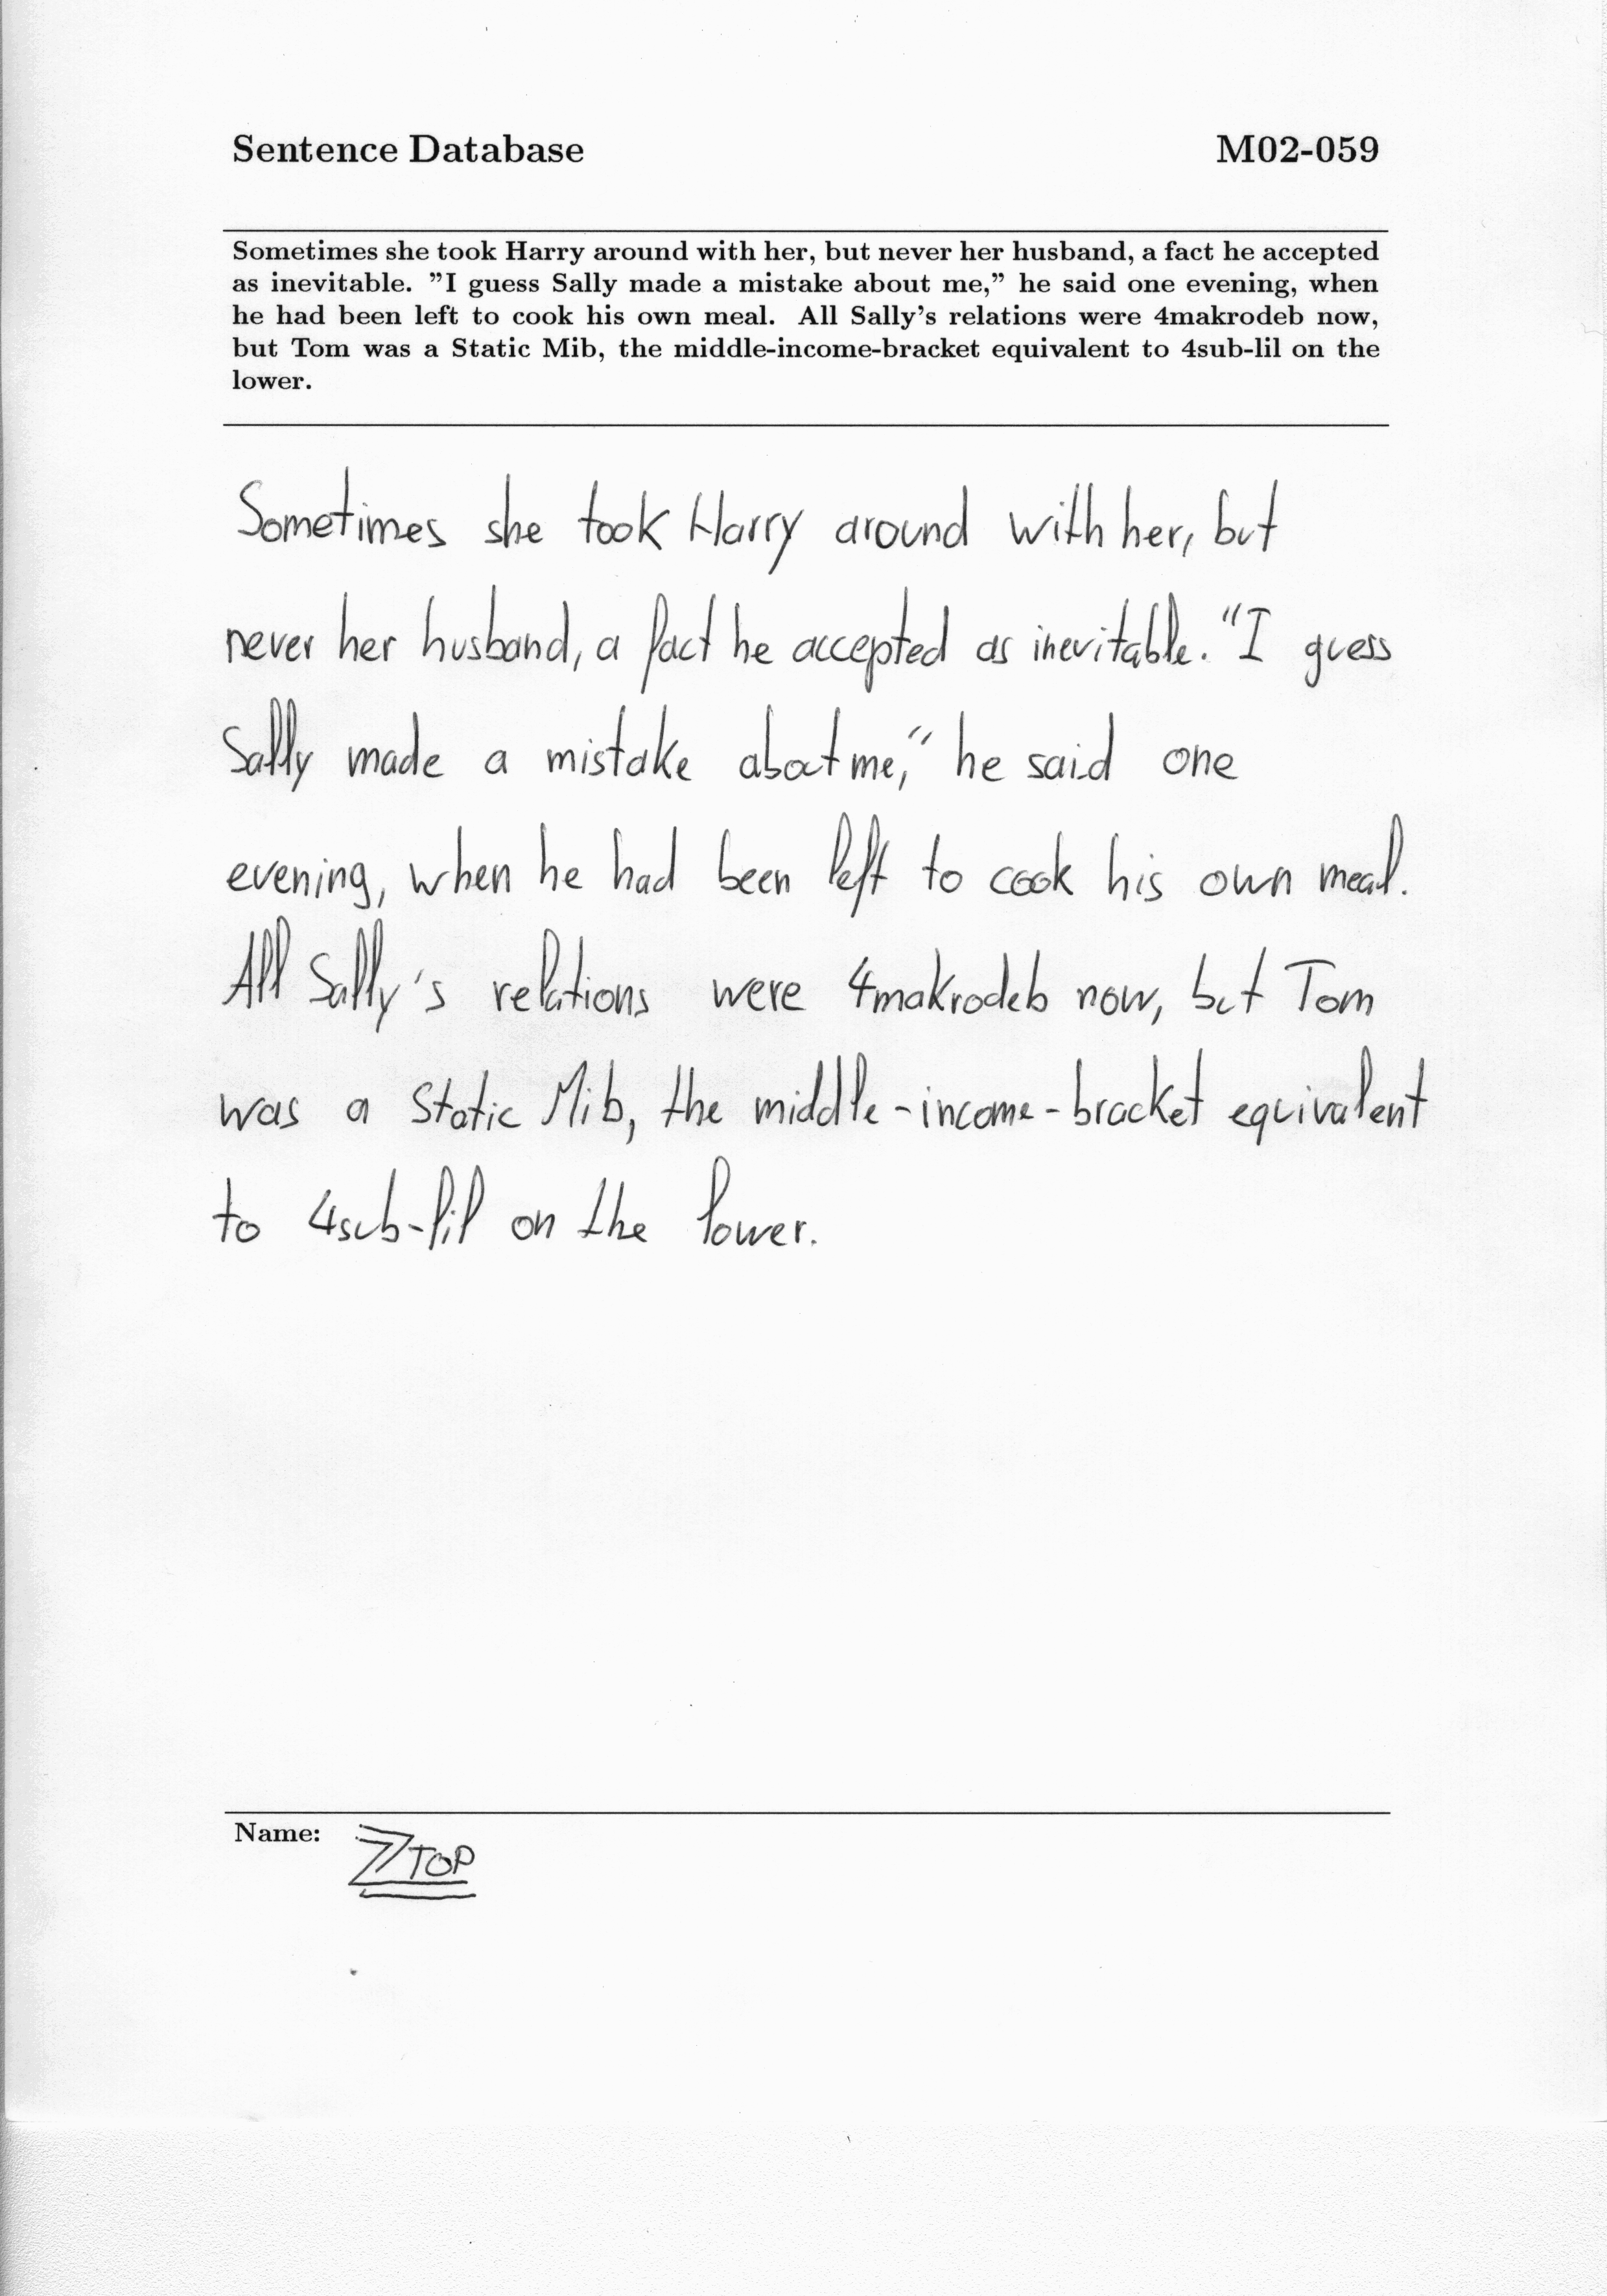 Sentence Database M02-059
Sometimes she took Harry around with her, but never her husband, a fact he accepted
as inevitable. ”I guess Sally made a mistake about me,” he said one evening, when
he had been left to cook his own meal. All Sally’s relations were 4makrodeb now,
but Tom was a Static Mib, the middle-income-bracket equivalent to 4sub-lil on the
lower.
Sometimes she took Harry around with her, but
never her husband, a fact he accepted as inevitable. "I guess
Sally made a mistake about me," he said one
evening, when he had been left to cook his own meal.
All Sally's relations were 4makrodeb now, but Tom
was a Static Mib, the middle-income-bracket equivalent
to 4sub-lil on the lower.
Name: ZZTOP